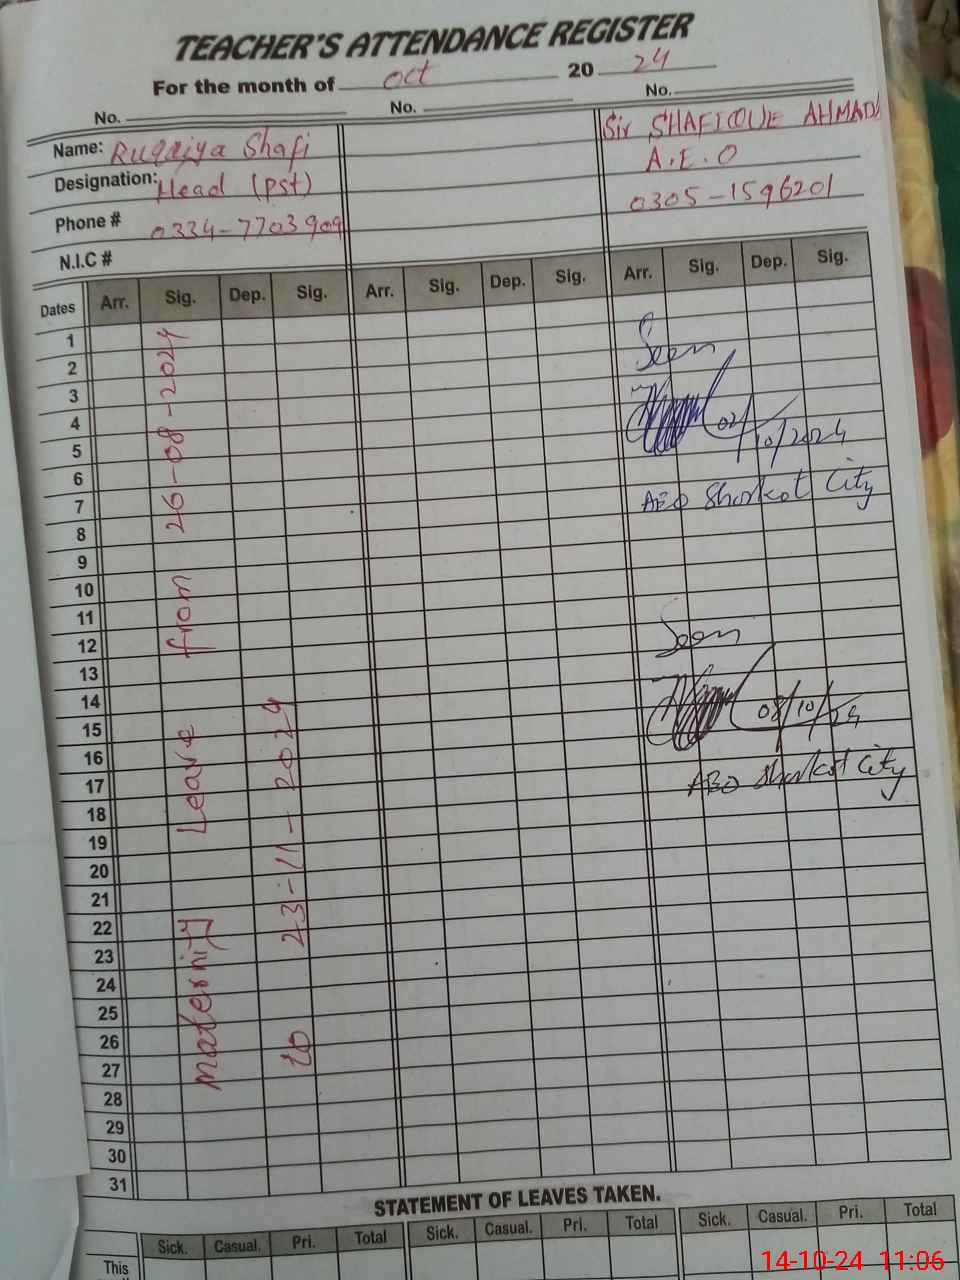 TEACHER'S ATTENDANCE REGISTER
For the month of Oct 20 24
No. No. No.
Name: Ruqaiya Shafi
Sir SHAFIQUE AHMAD
Designation: Head (PST)
A.E.O
Phone # 0334-7703909
0305-1596201
N.I.C #
Dates Arr. Sig. Dep. Sig. Arr. Sig. Dep. Sig. Arr. Sig. Dep. Sig.
1
2
3
4
5
6
7
8
9
10
11
12
13
14
15
16
17
18
19
20
21
22
23
24
25
26
27
28
29
30
31
Maternity Leave from 26-08-2024
to 23-11-2024
Seen
02/10/2024
AEO Shorkot City
Seen
08/10/24
AEO Shorkot City
STATEMENT OF LEAVES TAKEN.
Sick. Casual. Pri. Total Sick. Casual. Pri. Total Sick. Casual. Pri. Total
This
14-10-24 11:06